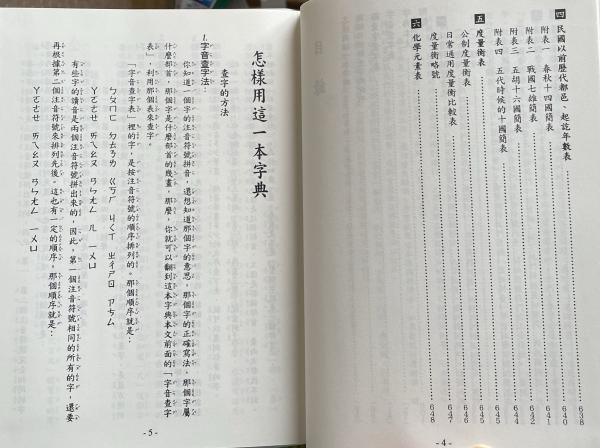 四 民國以前歷代都邑、起訖年數表 638
附表一 春秋十四國簡表 640
附表二 戰國七雄簡表 641
附表三 五胡十六國簡表 642
附表四 五代時候的十國簡表 644
五 度量衡表 645
公制度量衡表 645
日常通用度量衡比較表 646
度量衡略號 647
六 化學元素表 648
- 4 -
怎樣用這一本字典
查字的方法
1.字音查字法：
你知道一個字的注音符號拼音，還想知道那個字的意思，那個字的正確寫法，那個字屬
什麼部首，那個字是什麼部首的幾畫，那麼，你就可以翻到這本字典本文前面的「字音查字
表」，利用那個表來查字。
「字音查字表」裡的字，是按注音符號的順序排列的。那個順序就是：
ㄅㄆㄇㄈ ㄉㄊㄋㄌ ㄍㄎㄏ ㄐㄑㄒ ㄓㄔㄕㄖ ㄗㄘㄙ
ㄚㄛㄜㄝ ㄞㄟㄠㄡ ㄢㄣㄤㄥ ㄦ ㄧㄨㄩ
有些字的讀音是兩個注音符號拼出來的，因此，第一個注音符號相同的所有的字，還要
再根據第二個注音符號來排列先後。這也有一定的順序，那個順序就是：
ㄚㄛㄜㄝ ㄞㄟㄠㄡ ㄢㄣㄤㄥ ㄧㄨㄩ
- 5 -